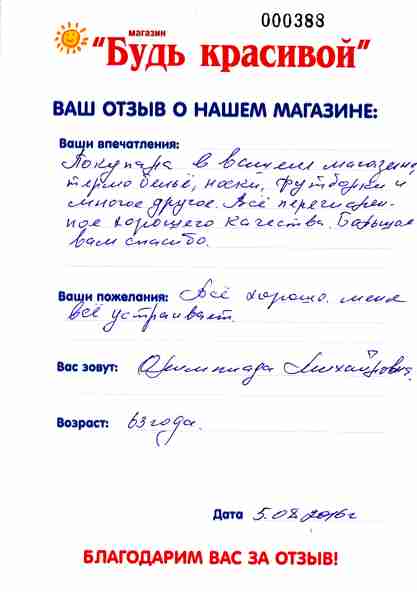 000388
магазин
"Будь красивой"
ВАШ ОТЗЫВ О НАШЕМ МАГАЗИНЕ:
Ваши впечатления:
Покупала в вашем магазине,
термобельё, носки, футболки и
многое другое. Всё перечислен-
ное хорошего качества. Большое
вам спасибо.
Ваши пожелания: Всё хорошо. меня
всё устраивает.
Вас зовут: Олимпиада Михайловна
Возраст: 63 года.
Дата 5.08.2016г
БЛАГОДАРИМ ВАС ЗА ОТЗЫВ!